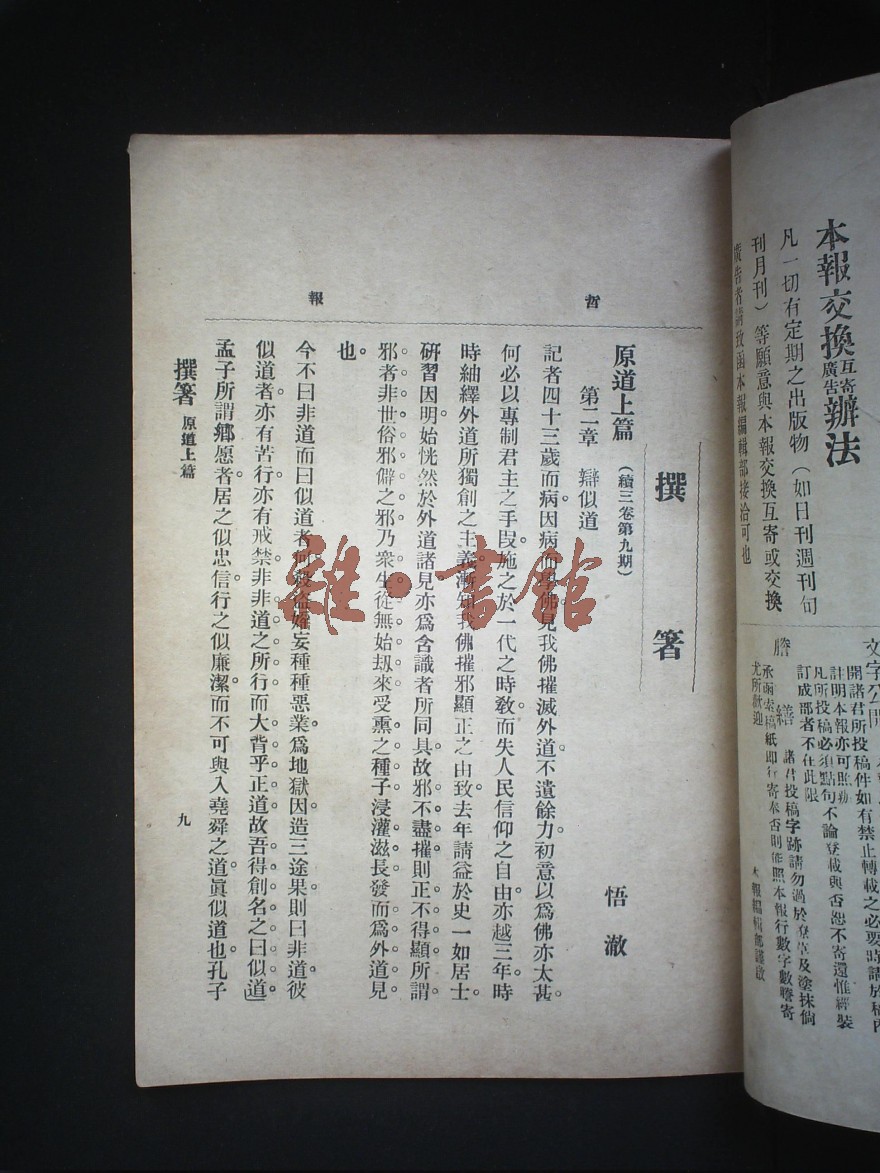 本報交換互寄廣告辦法
凡一切有定期之出版物（如日刊週刊旬
刊月刊）等願意與本報交換互寄或交換
廣告者請致函本報編輯部接洽可也
文字公開
開諸君所投稿件如有禁止轉載之必要時請於稿內
註明本報亦可照辦
凡所投稿必須點句不論登載與否恕不寄還惟經裝
訂成部者不在此限
謄繕
諸君投稿字跡請勿過於草及塗抹倘
承函索稿紙即行寄奉否則能照本報行數字數謄寄
尤所歡迎
本報編輯部謹啟
哲報
撰箸
原道上篇（續三卷第九期）
悟澈
第二章 辯似道
記者四十三歲而病。因病而佛。見我佛摧滅外道不遺餘力。初意以爲佛亦太甚。
何必以專制君主之手段。施之於一代之時教。而失人民信仰之自由。亦越三年。時
時紬繹外道所獨創之主義。漸知我佛摧邪顯正之由致。去年請益於史一如居士。
研習因明。始恍然於外道諸見。亦爲含識者所同具。故邪不盡摧。則正不得顯。所謂
邪者。非世俗邪僻之邪。乃衆生從無始刼來。受熏之種子。浸灌滋長。發而爲外道見
也。
今不曰非道。而曰似道者何。殺盜婬妄。種種惡業。爲地獄因。造三途果。則曰非道。彼
似道者。亦有苦行。亦有戒禁。非非道之所行。而大背乎正道。故吾得創名之曰似道。
孟子所謂鄉愿者。居之似忠信。行之似廉潔。而不可與入堯舜之道。眞似道也。孔子
撰箸 原道上篇
九
雜·書館